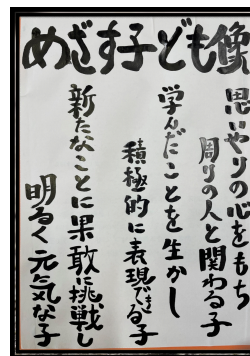 めざす子ども像
思いやりの心をもち
周りの人と関わる子
学んだことを生かし
積極的に表現できる子
新たなことに果敢に挑戦し
明るく元気な子